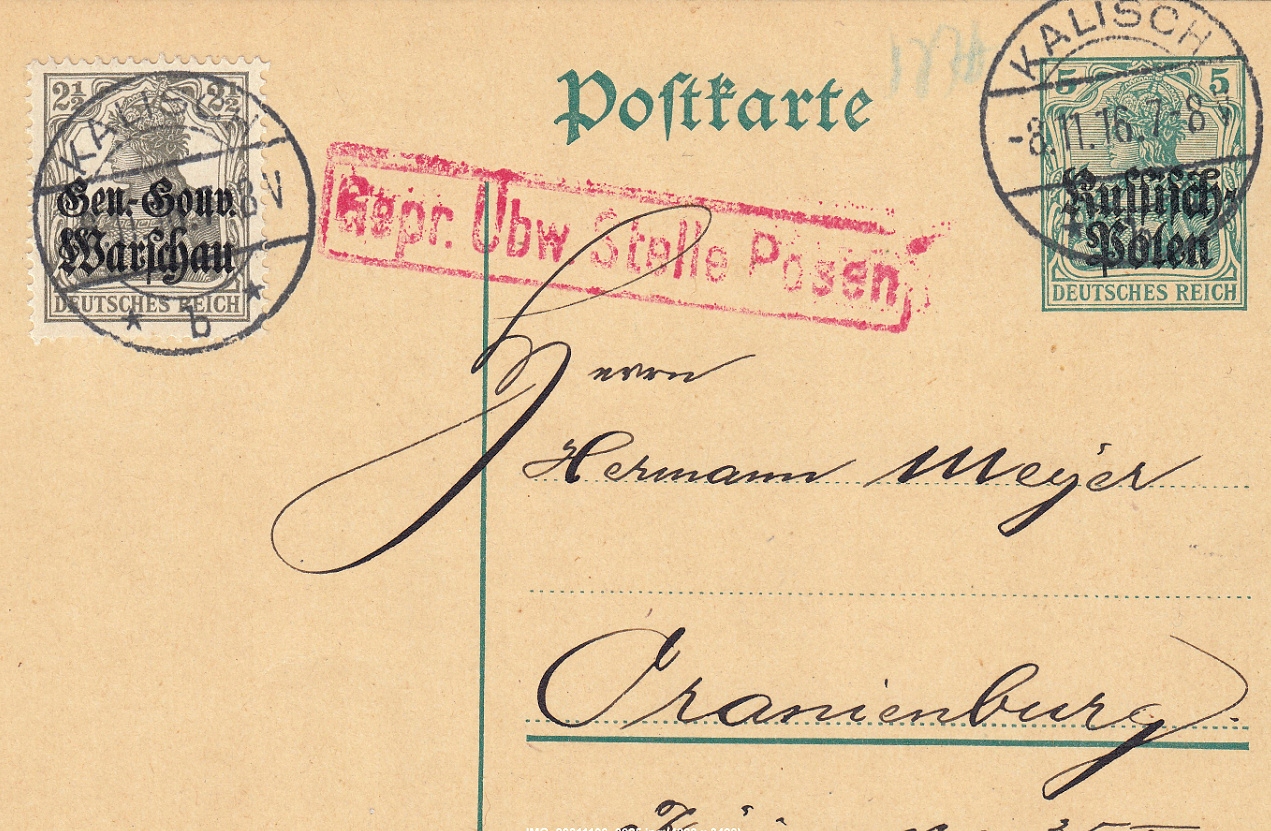 Postkarte
2½ 2½
Gen.-Gouv.
Warschau
DEUTSCHES REICH
KALISCH
8V
b
Gepr. Übw Stelle Posen
KALISCH
-8.11.16. 7-8V
5 5
Russisch-
Polen
DEUTSCHES REICH
Herrn
Hermann Meyer
Oranienburg.